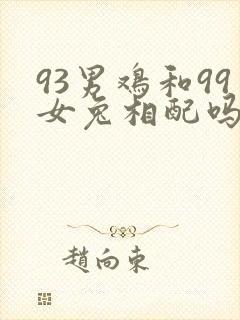 93男鸡和99
女兔相配吗
趙向東